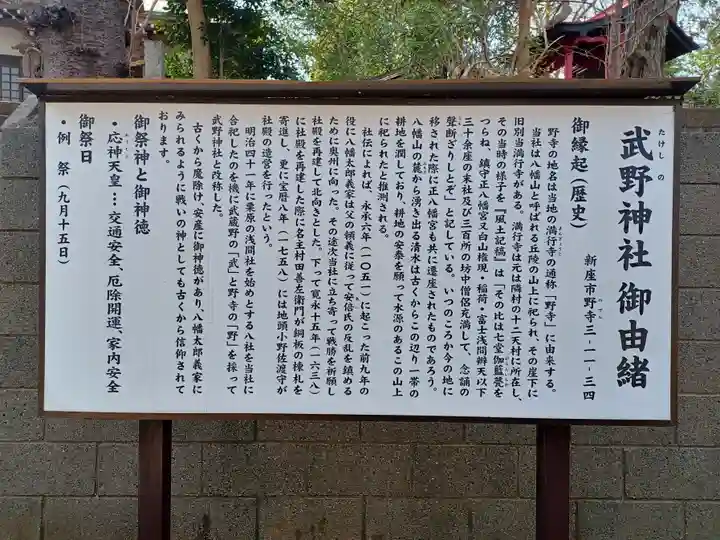 武野神社 御由緒
たけしの
新座市野寺三-一一-三四
御縁起（歴史）
野寺の地名は当地の満行寺の通称「野寺」に由来する。
当社は八幡山と呼ばれる丘陵の山上に祀られ、その崖下に
旧別当満行寺がある。満行寺は元は隣村の十二天村に所在し、
その当時の様子を『風土記稿』は「その比は七堂伽藍甍を
つらね、鎮守正八幡宮又白山権現・稲荷・富士浅間辨天以下
三十余座の末社及び三百所の坊中僧侶充満して、念誦の
聲断ざりしとぞ」と記している。いつのころか今の地に
移された際に正八幡宮も共に遷座されたものであろう。
八幡山の麓から湧き出る清水は古くからこの辺り一帯の
耕地を潤しており、耕地の安泰を願って水源のあるこの山上
に祀られたと推測される。
社伝によれば、永承六年（一〇五一）に起こった前九年の
役に八幡太郎義家は父の頼義に従って安倍氏の反乱を鎮める
ために奥州に向った。その途次当社に立ち寄って戦勝を祈願し
社殿を再建して北向きとした。下って寛永十五年（一六三八）
に社殿を再建した際に名主村田善左衛門が銅板の棟札を
寄進し、更に宝暦八年（一七五八）には地頭小野佐渡守が
社殿の造営を行ったという。
明治四十一年に栗原の浅間社を始めとする八社を当社に
合祀したのを機に武蔵野の「武」と野寺の「野」を採って
武野神社と改称した。
古くから魔除け、安産に御神徳があり八幡太郎義家に
みられるように戦いの神としても古くから信仰されて
おります。
御祭神と御神徳
・応神天皇…交通安全、厄除開運、家内安全
御祭日
・例 祭（九月十五日）